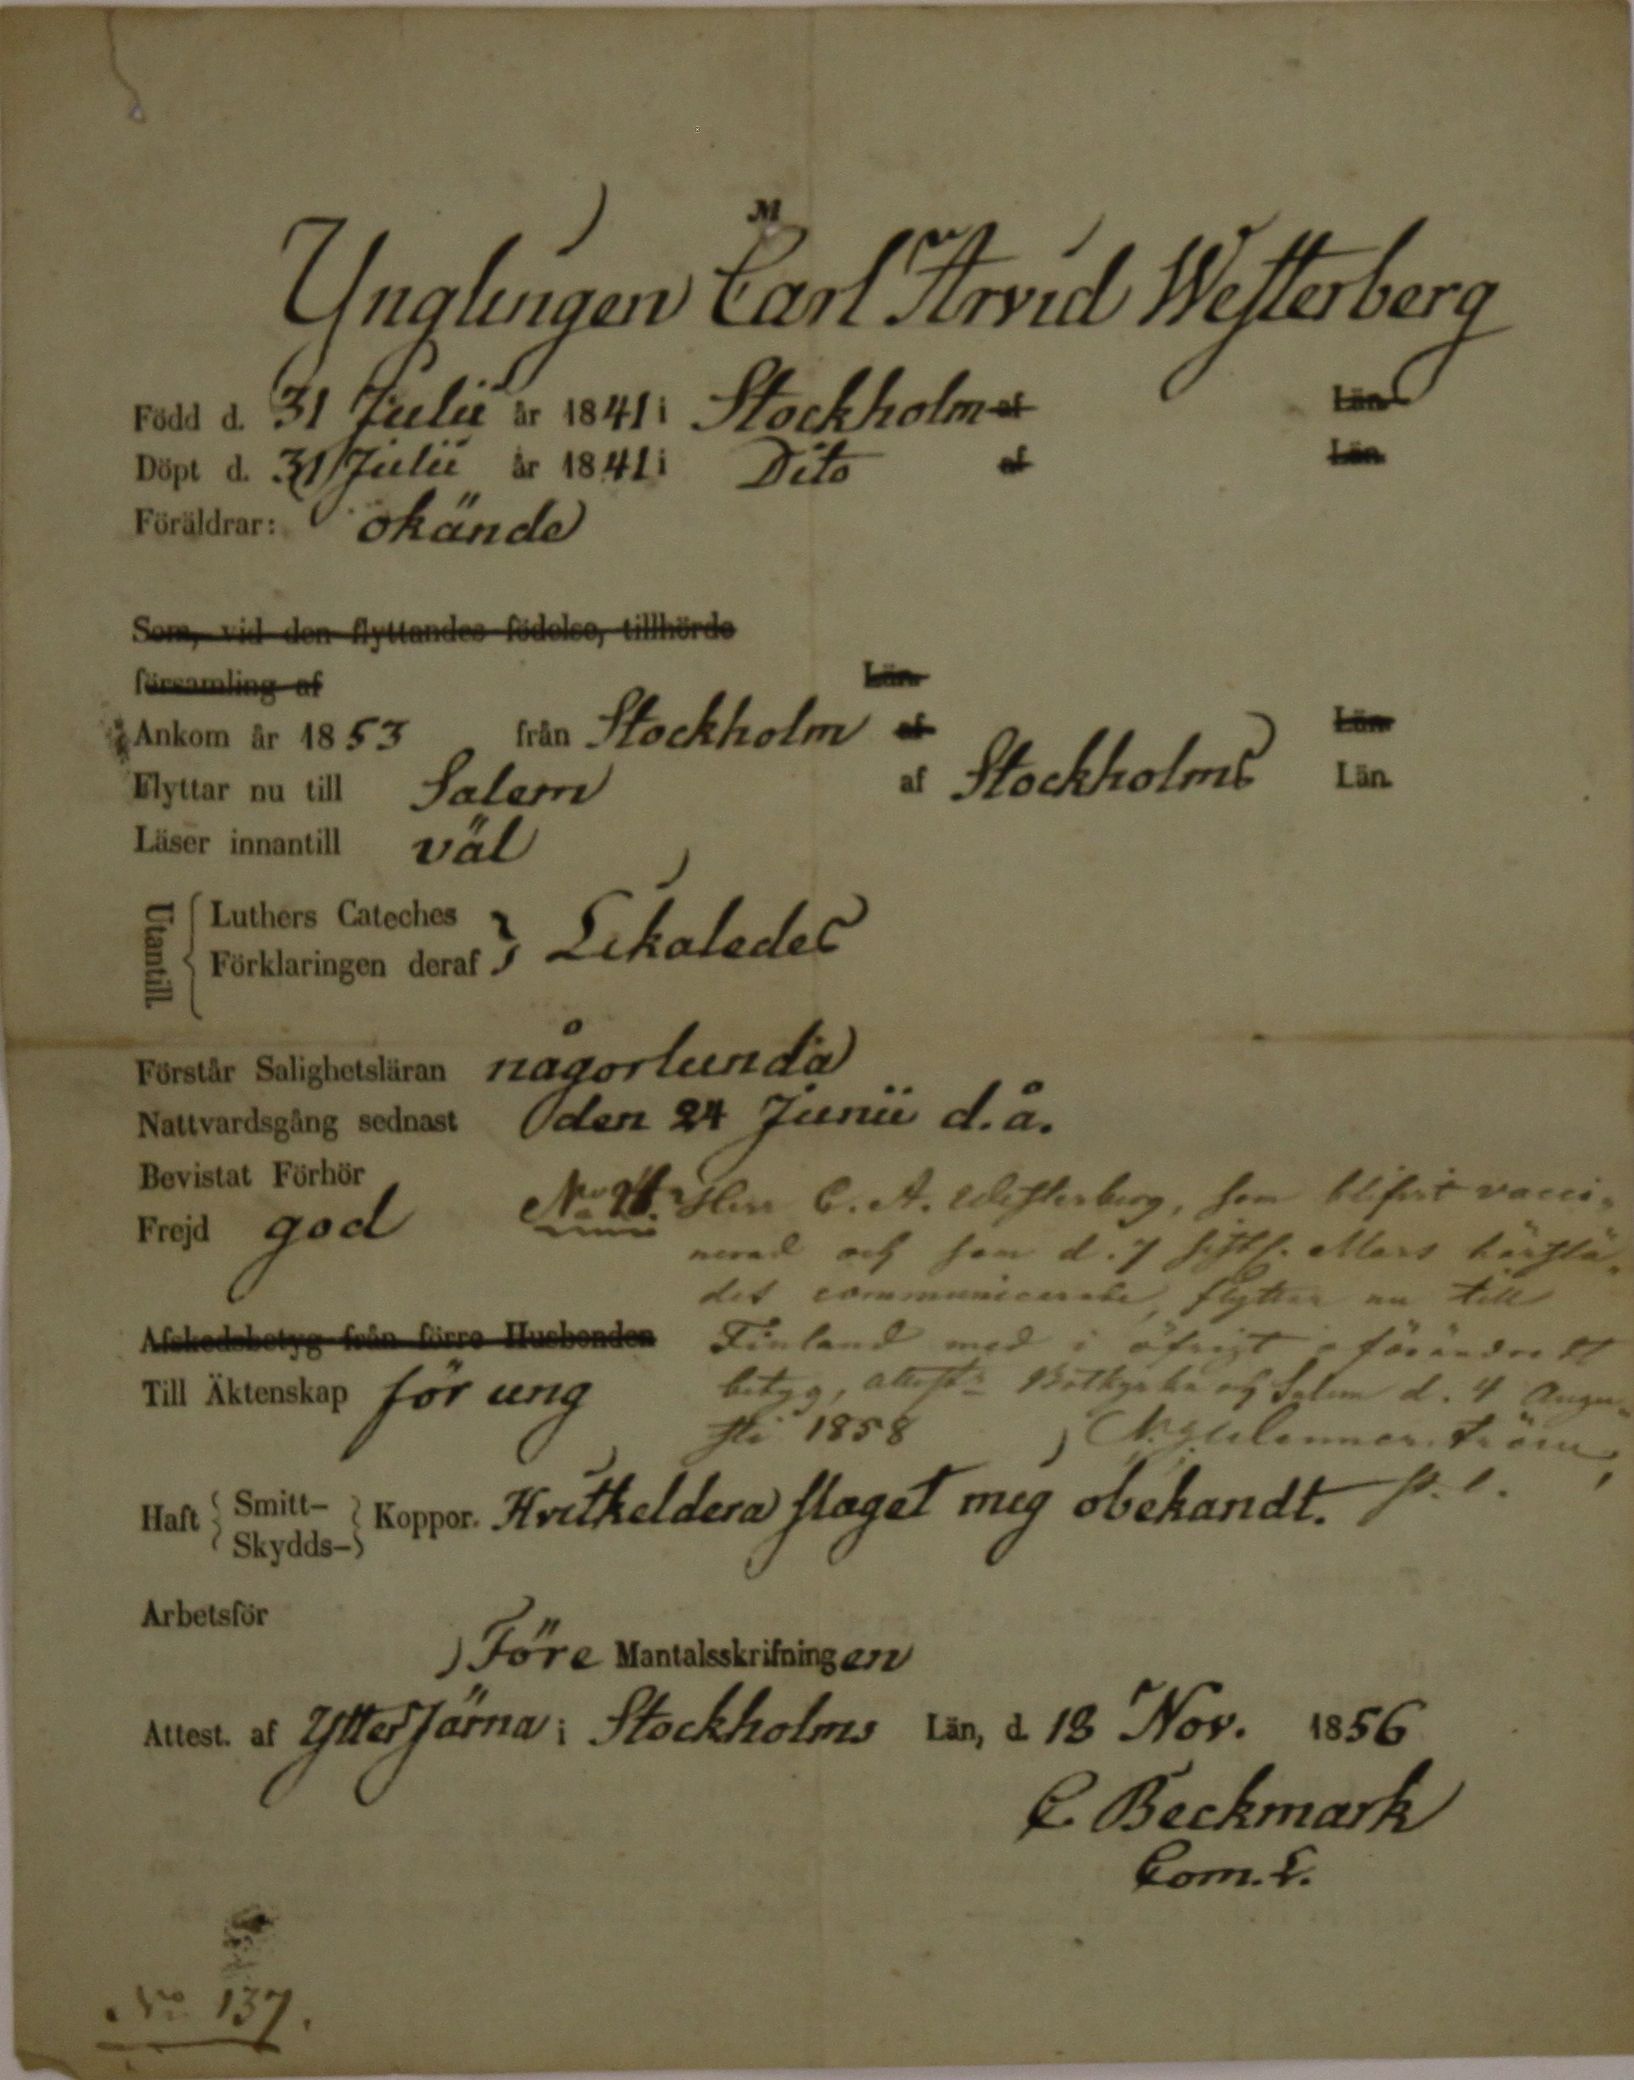 M
Ynglingen Carl Arvid Westerberg
Född d. 31 Julii år 1841 i Stockholm af Län
Döpt d. 31 Julii år 1841 i Dito af Län
Föräldrar: okände
Som, vid den flyttandes födelse, tillhörde
församling af Län.
Ankom år 1853 från Stockholm af Län
Flyttar nu till Salem af Stockholms Län.
Läser innantill väl
Utantill. { Luthers Cateches
Förklaringen deraf } Likaledes
Förstår Salighetsläran någorlunda
Nattvardsgång sednast den 24 Junii d.å.
Bevistat Förhör
Frejd god
Herr C. A. Westerberg, som blifvit vacci-
nerad och som d. 7 sistl. Mars härstä-
des communicerade, flyttar nu till
Finland med i öfrigt oförändradt
betyg, attest. Bothyrka och Salem d. 4 Augu-
sti 1858
p. l.
Afskedsbetyg från förre Husbonden
Till Äktenskap för ung
Haft { Smitt-
Skydds- } Koppor. Hvitkeldera slaget mig obekandt.
Arbetsför
Före Mantalsskrifningen
Attest. af Ytter Järna i Stockholms Län, d. 18 Nov. 1856
C. Beckmark
Com.
No 137.